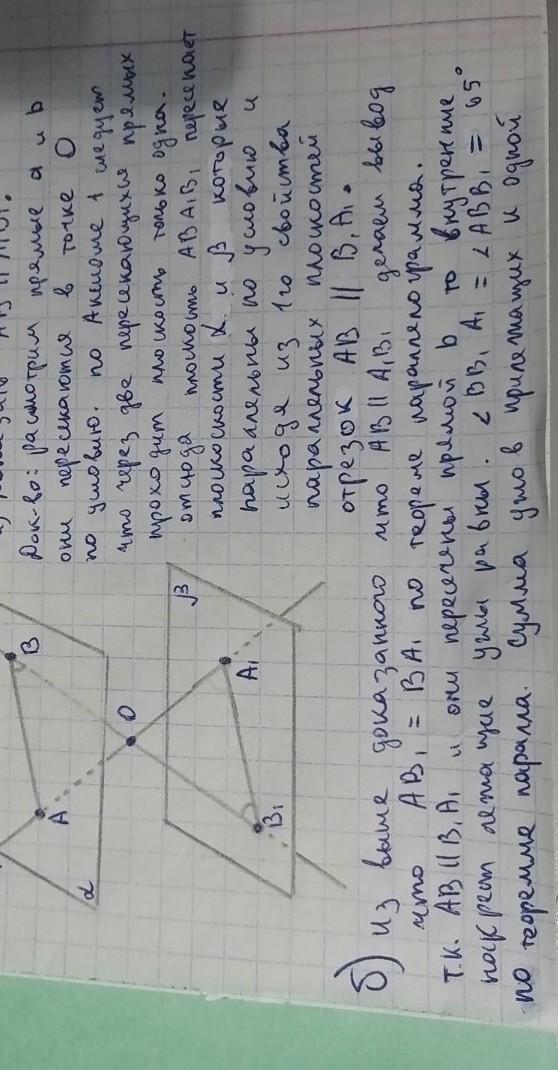 Док-во: рассмотрим прямые a и b
они пересекаются в точке O
по условию. по Аксиоме 1 следует
что через две пересекающиеся прямых
проходит плоскость только одна.
отсюда плоскость ABA₁B₁ пересекает
плоскости α и β которые
параллельны по условию и
исходя из 1го свойства
параллельных плоскостей
отрезок AB || B₁A₁.
B
A
O
α
β
A₁
B₁
б) из выше доказанного что AB || A₁B₁ делаем вывод
что AB₁ = BA₁ по теореме параллелограмма.
т.к. AB || B₁A₁ и они пересечены прямой b то внутренние
накрест лежащие углы равны. ∠BB₁A₁ = ∠ABB₁ = 65°
по теоремме паралл. Сумма углов прилежащих к одной